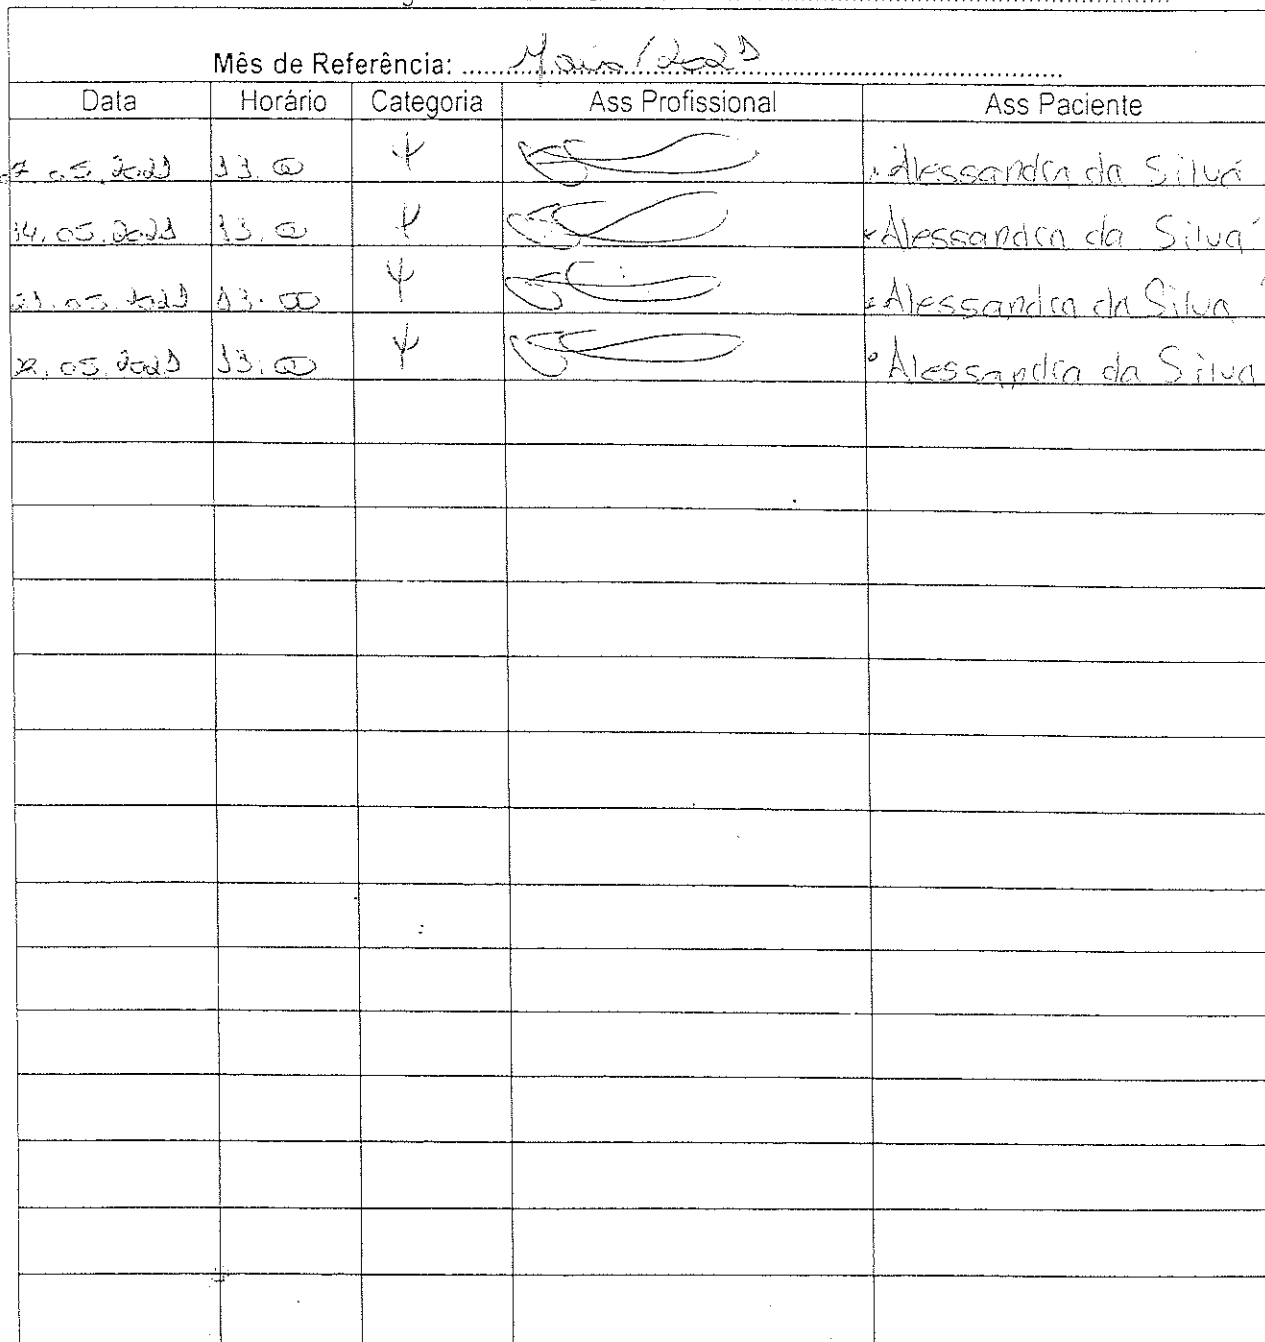 Mês de Referência: Maio/2021
Data Horário Categoria Ass Profissional Ass Paciente
7.05.2021 13:00 Ψ Alessandra da Silva
14.05.2021 13:00 Ψ Alessandra da Silva
21.05.2021 13:00 Ψ Alessandra da Silva
.05.2021 13:00 Ψ Alessandra da Silva